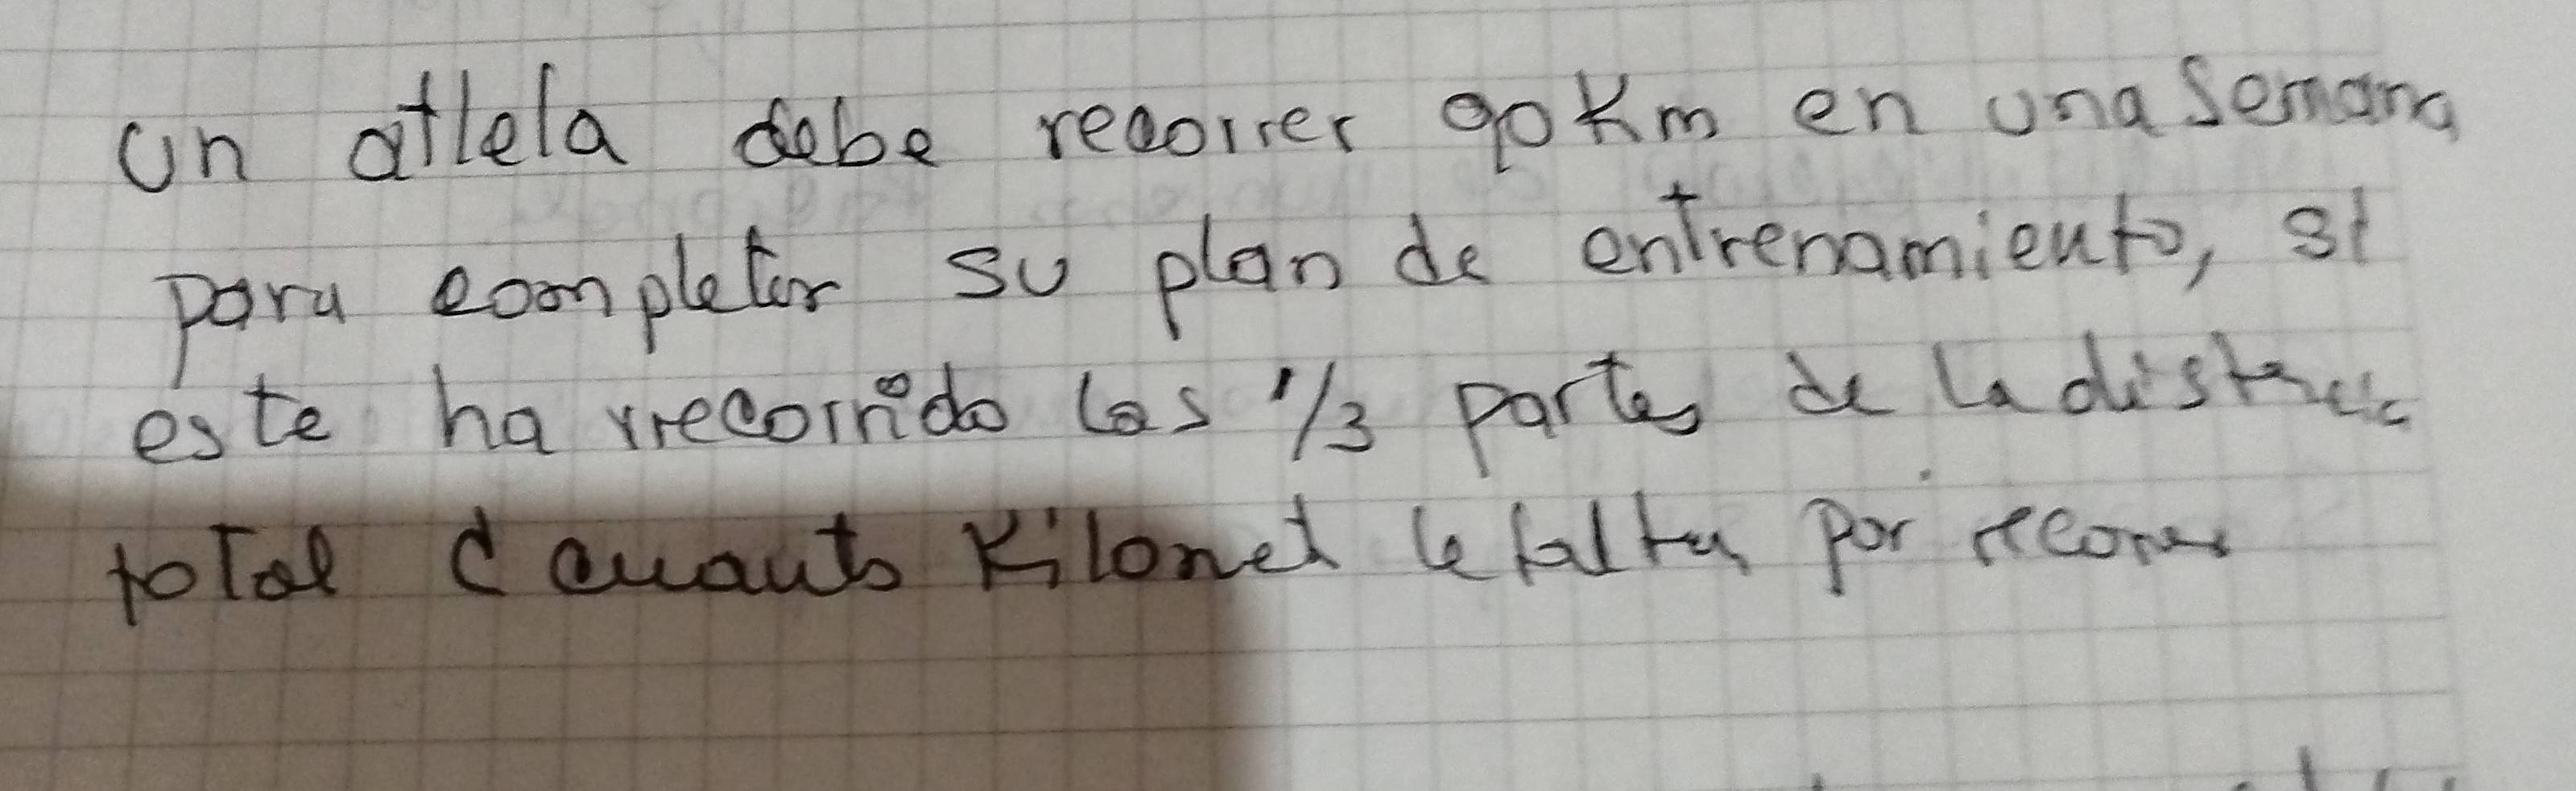 Un atleta debe recorrer 90 Km en una Semana
para completar su plan de entrenamiento, si
este ha rrecorrido las 1/3 partes de la distancia
total ¿ cuanto Kilomet le falta por recorrer